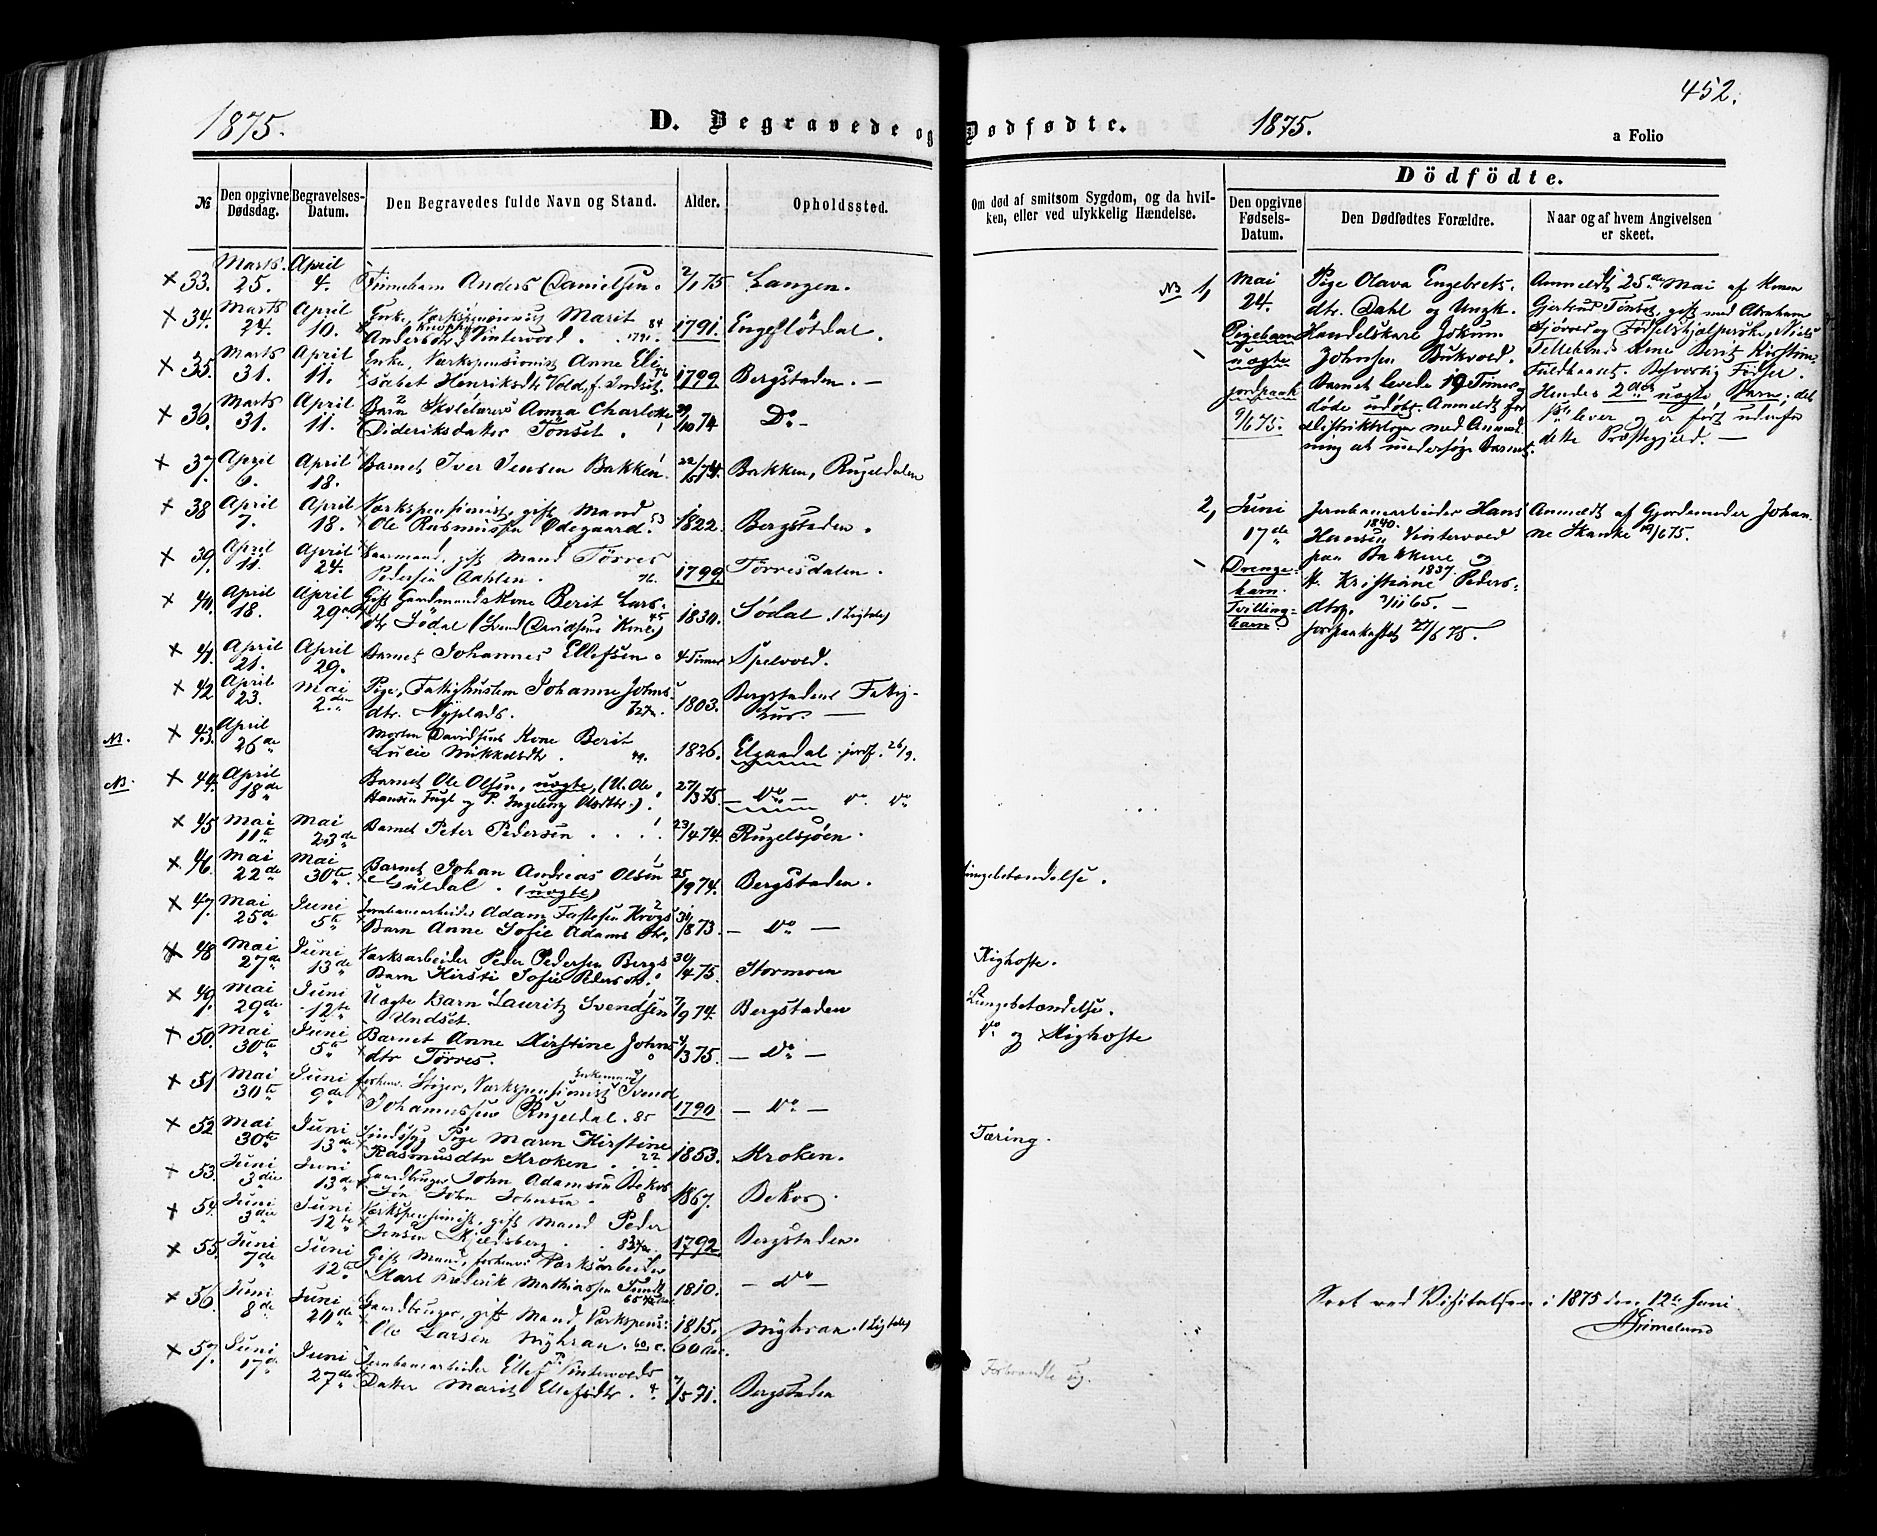 452.
1875. D. Begravede og Dødfødte. 1875. a Folio
№
Den opgivne Dødsdag.
Begravelses-Datum.
Den Begravedes fulde Navn og Stand.
Alder.
Opholdssted.
Om død af smitsom Sygdom, og da hvilken, eller ved ulykkelig Hændelse.
Dödfödte.
Den opgivne Fødsels-Datum.
Den Dødfødtes Forældre.
Naar og af hvem Angivelsen er skeet.
33. Marts 25. April 4. Finnebarn Anders Danielsen. 2/1 75 Langen.
34. Marts 24. April 10. Enke, Værkspensionist Marit 84
Andersdtr. Vintervold. 1791. 1791. Engeslötdal.
35. Marts 31. April 11. Enke, Værkspensionist Anne Eli-
sabet Henriksdtr Vold, f. 76 1799. Bergstaden. —
36. Marts 31. April 11. Barn Skolelærers Anna Charlotte
Dideriksdatter Tönset. 29/10 74 Do -
37. April 6. April 18. Barnet Iver Jensen Bakken. Bakken, Rugeldalen
38 April 7. April 18. Værkspensionist, gift Mand 53
Ole Rasmussen Ødegaard. 1822. Bergstaden.
39. April 11. April 24. gift Mand Törres
Pedersen Aahlen. 76. 1799. Törresdalen.
40. April 18. April 29de Gift Gaardmandskone Berit Lars-
dtr. Södal (Svend Davidsens Kone) 45 1830. Södal. (Ligtale)
41. April 21. April 29. Barnet Johannes Ellefsen. 4 Timer Spelvold.
42 April 23. Mai 2den Pige, Fattighuslem Johanne Johns-
dtr. Nyplads. 72 1803. Bergstadens Fattig-
hus. —
NB. 43. April 26de Morten Davidsens Kone Berit
Lucie Mikkelsdtr. 49. 1826. Elgaadal. jordf. 26/9.
NB. 44. April 18de Barnet Ole Olsen, uægte, (U. Ole
Hansen Fugl og P. Ingeborg Olsdtr.) 27/3 75 — Do — Do Do
45 Mai 11te Mai 23de Barnet Peter Pedersen 1 23/4 74. Rugelsjöen.
46. Mai 22de Mai 30te Barnet Johan Andreas Olsen 1
Guldal. (uægte) 25/1 74. Bergstaden. Lungebetændelse.
47. Mai 25de Juni 5te Jernbanearbeider Adam Fastesen Krogs 2
Barn Anne Sofie Adams dtr. 31/1 73. — Do —
48 Mai 27de Juni 13de Værksarbeider Peder Pedersen Bergs
Barn Kirsti Sofie Peders dtr. 30/4 75. Stormoen Kighoste.
49. Mai 29de Juni 12te Uægte Barn Lauritz Svendsen 1
Undset. 7/9 74. Bergstaden Lungebetændelse.
50. Mai 30te Juni 5te Barnet Anne Kirstine Johns
dtr Törres. 4/3 75. — Do — Do og Kighoste
51 Mai 30te Juni 9de forhenv. Stiger, Værkspensionist Enkemand Svend
Johannessen Rugeldal. 85 1790 — Do —
52 Mai 30te Juni 13de Sindssyg Pige Maren Kirstine
Rasmusdtr Kroken. 22 1853. Kroken. Tæring.
53. Juni 3die Juni 13de Gaardbruger John Adamsen Bekos
Sön John Johnsen 8 1867. Bekos.
54. Juni 3die Juni 12te Værkspensionist, gift Mand Peder
Jensen Kjeldsberg 83 1792. Bergstaden.
55. Juni 7de Juni 12te Gift Mand, forhenv. Værksarbeider
Karl Frederik Mathiassen Sundt 65 1810. — Do —
56. Juni 8de Juni 20de Gaardbruger, gift Mand Værkspens:
Ole Larsen Nyhran. 60 1815. 60 Aar. Nyhran. (Ligtale)
57. Juni 17de Juni 27de Jernbanearbeider Ellef Vintervolds
Datter Marit Ellefsdtr. 4. 7/5 71. Bergstaden
NB 1, Mai 24. Pigebarn uægte jordpaak. 9/6 75.
Pige Olava Engebrets-
dtr. Dahl og Ungk.
Handelskarl Jokum
Johnsen Bukvold.
Barnet levede 19 Timer,
døde udøbt. Anmeldt for
Distriktslæge med Anmod-
ning at undersøge Barnet.
Anmeldt 25de Mai af Konen
Gjertrud Tönset, gift med Abraham
Sjövold og Födselshjælperske, Niels
Tellebens Kone Berit Kirstine
Fuldbaaret. Besværlig Födsel.
Hendes 2det uægte Barn; det
1ste lever og er født udenfor
dette Præstegjeld. —
2, Juni 17de Drengebarn. Tvillingbarn.
Jernbanearbeider Hans
1840.
Hansen Vintervold
paa Bakkene og
H. Kristiane 1837. Peders-
dtr. 7/11 65. —
jordpaakastet 27/6 75.
Anmeldt af Gjordemoder Johan-
ne Skanke 19/6 75.
Seet ved Visitatsen i 1875 den 12te Juni
Grimelund